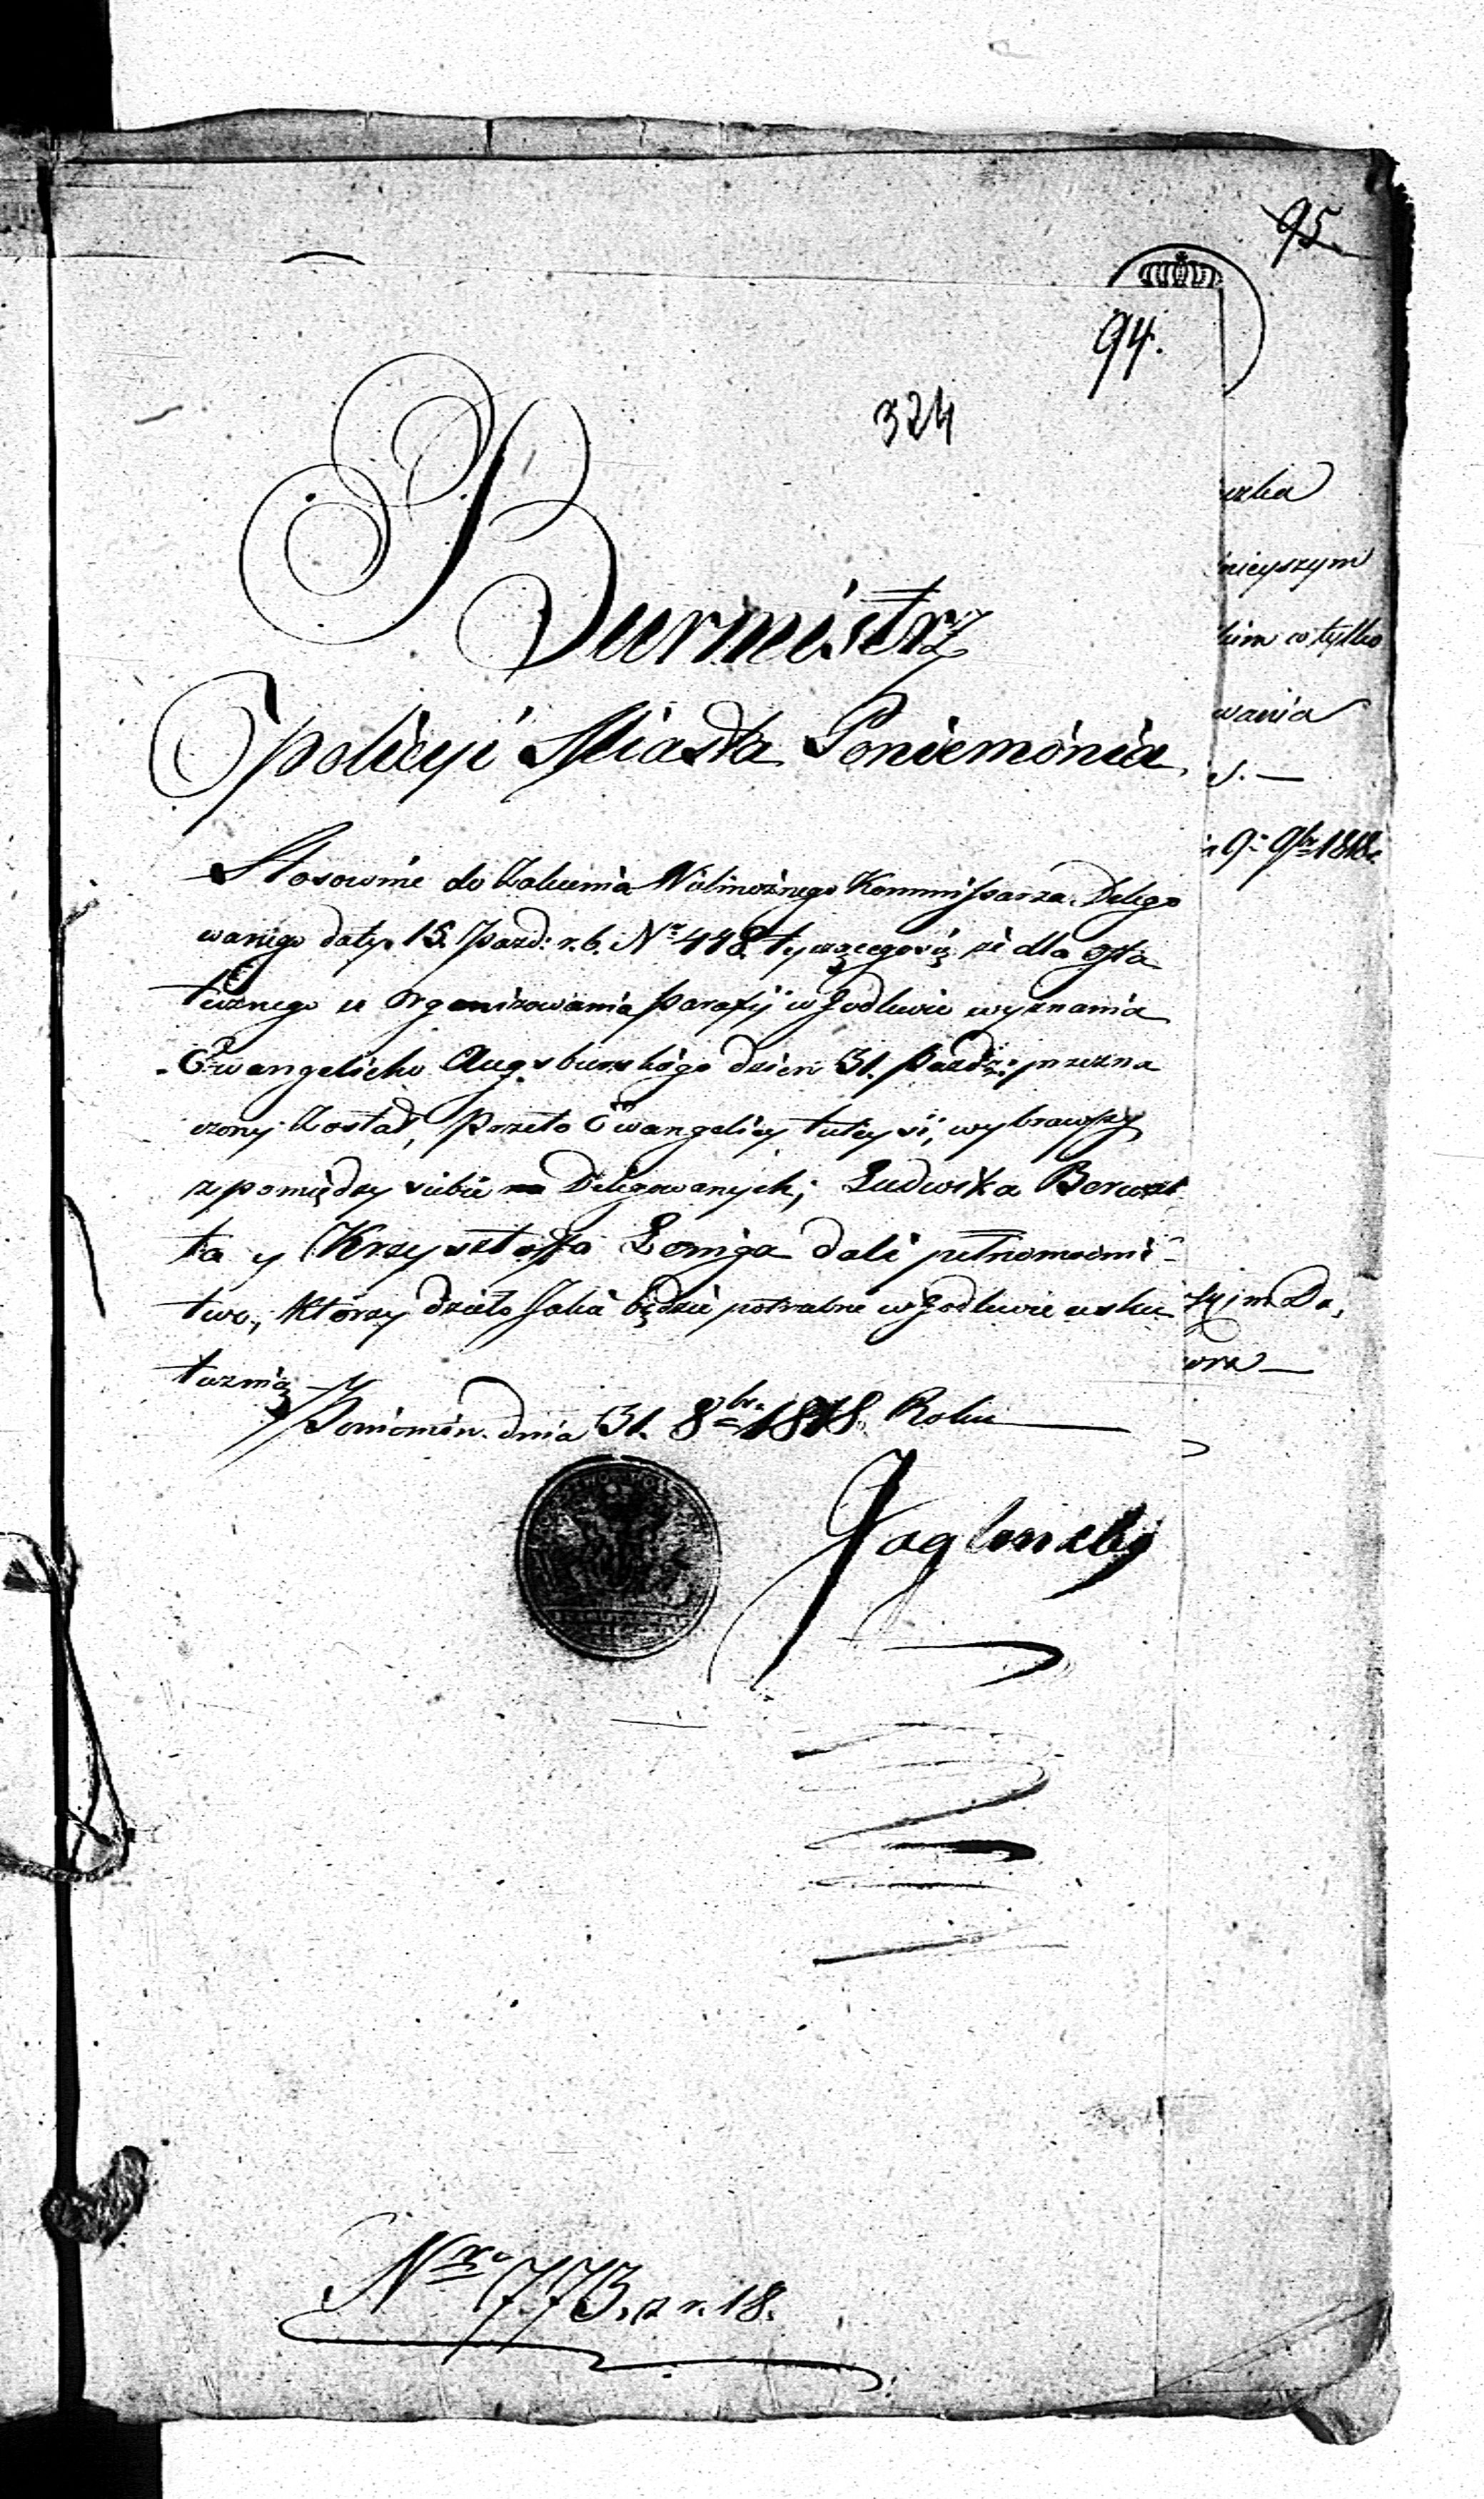 95.
94.
324
Burmistrz
policyi Miasta Poniemónia
Stosownie do Zalecenia Wielmożnego Kommissarza Delego
wanego daty 15. Pazd: r. b. Nr 448 tyczącego się że dla osta
tecznego u organizowania parafij w Godlewie wyznania
Ewangelicko Augsburskiego dzień 31. Pazdz: przezna
czony Został, Przeto Ewangelicy tuteysi, wybrawszy
z pomiędzy siebie na Deligowanych; Ludwika Berwat
ta y Krzysztoffa Loniga dali pełnomocni
two, którzy dzieło Jakie będzie potrzebne w Godlewie usku
tecznią
Poniemón dnia 31. 8br 1818 Roku
Nro 773. z r. 18.
nieyszym
co tylko
wania
9. 9br 1818.